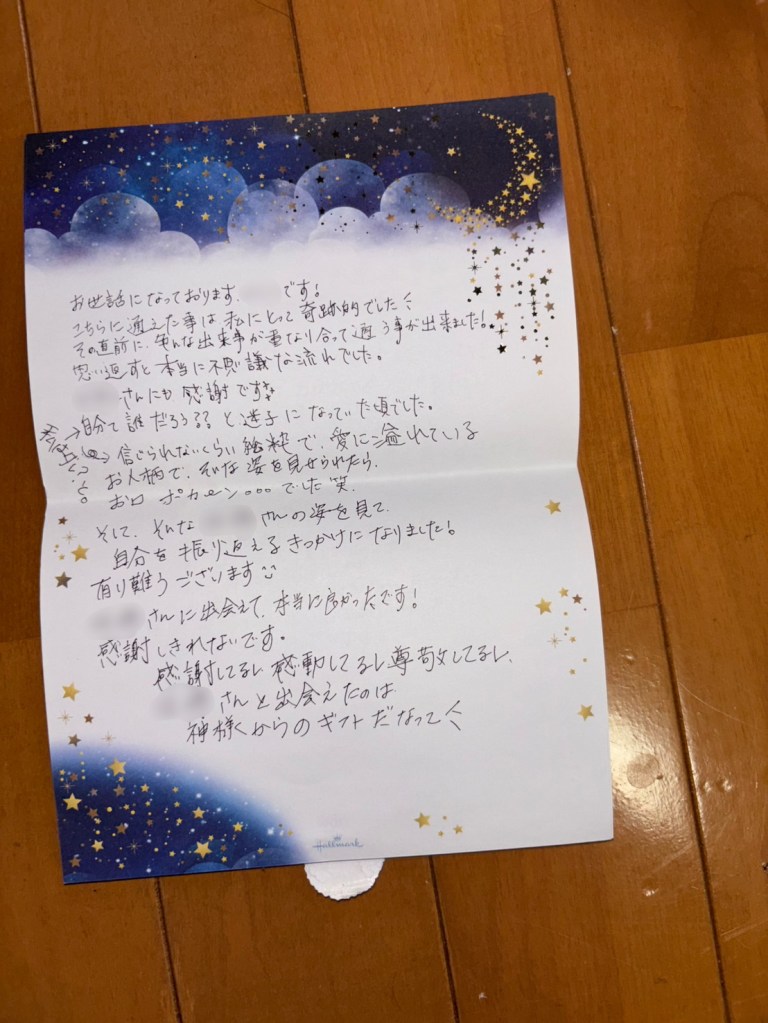 お世話になっております. です!
こちらに通えた事は私にとって奇跡的でした
その直前に、色んな出来事が重なり合って通う事が出来ました!
思い返すと本当に不思議な流れでした。
さんにも感謝です
→自分て誰だろう?? と迷子になっていた頃でした。
信じられないくらい純粋で、愛に溢れている
お人柄で、そんな姿を見せられたら、
お口 ポカーン。。。でした 笑
そして、そんな さんの姿を見て、
自分を振り返えるきっかけになりました!
有り難うございます
さんに出会えて、本当に良かったです!
感謝しきれないです。
感謝してるし感動してるし尊敬してるし、
さんと出会えたのは
神様からのギフトだなって
Hallmark